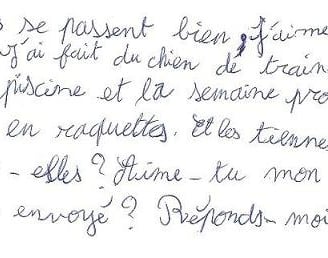 se passent bien, j'aime
j'ai fait du chien de train
piscine et la semaine pro
en raquettes. Et les tiennes
- elles ? Aime - tu mon
envoyé ? Réponds - moi